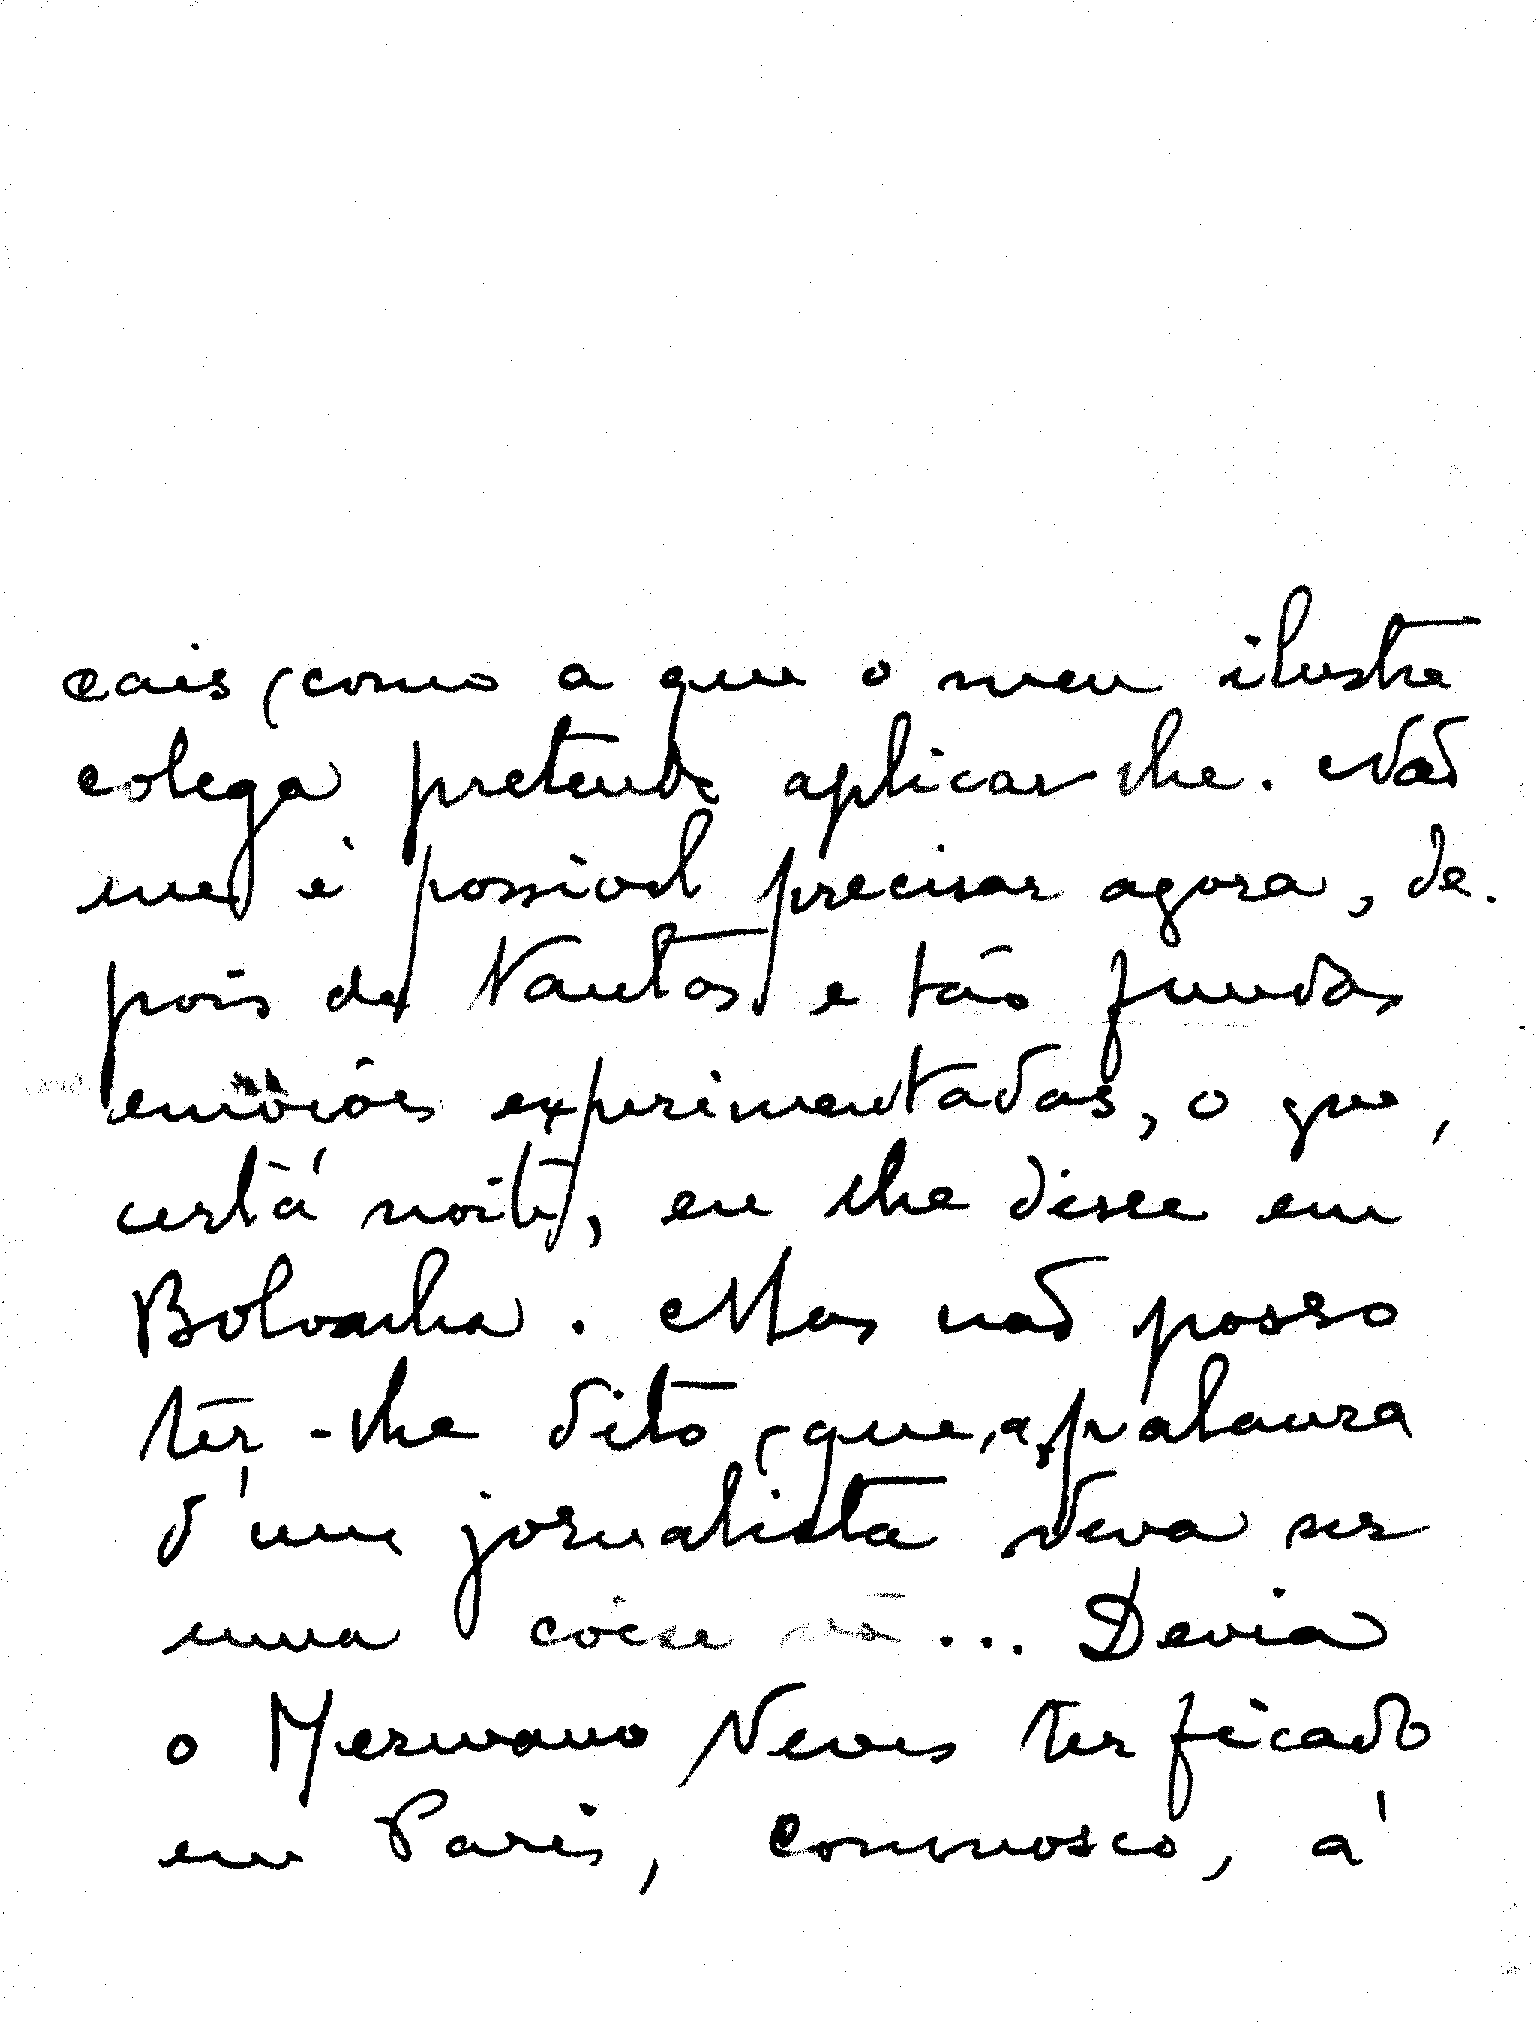 cais, como a que o meu ilustre
colega pretende aplicar-lhe. Não
me é possivel precisar agora, de-
pois de tantas e tão fundas
emoções experimentadas, o que,
certa noite, eu lhe disse em
Bolvacha. Mas não posso
ter-lhe dito, que, a palavra
d'um jornalista deva ser
uma coisa vã... Devia
o Hermano Neves ter ficado
em Paris, comnosco, á